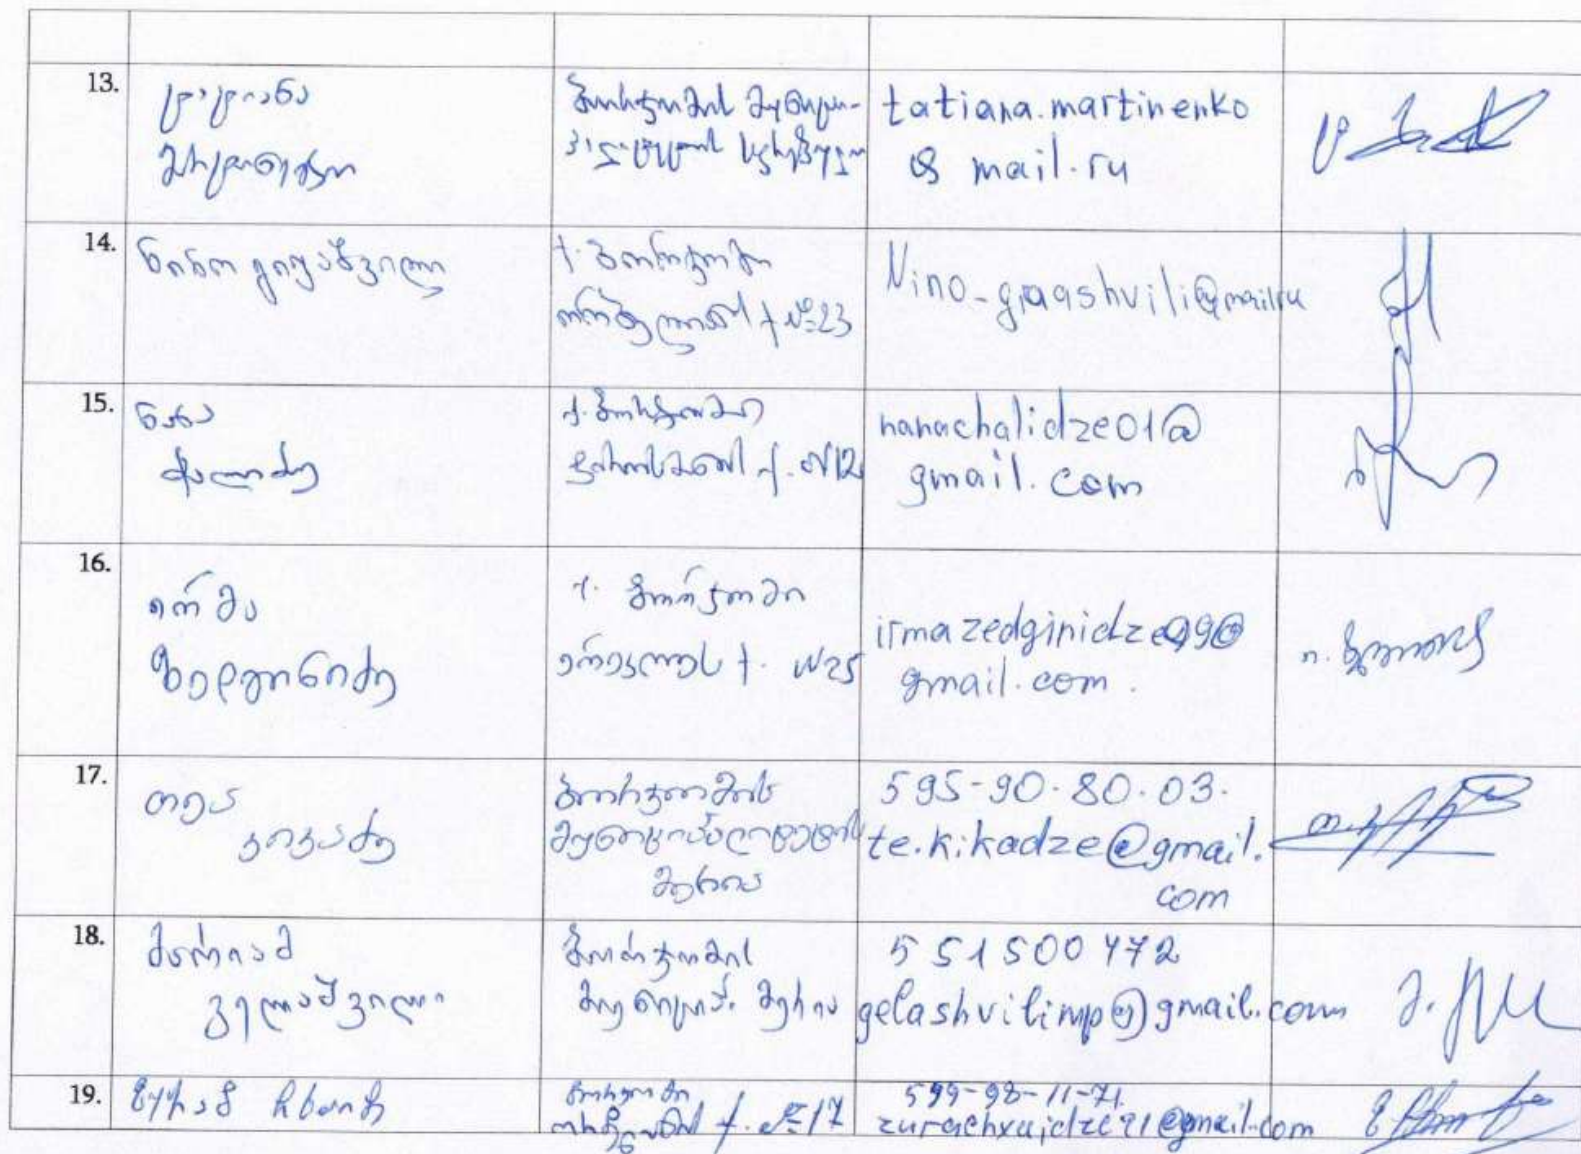 13.
ტატიანა
მარტინენკო
ბორჯომის მუნიცი-
პალიტეტის საკრებულო
tatiana.martinenko
@ mail.ru
14.
ნინო გიგაშვილი
ქ. ბორჯომი
ორბელიანის ქ №23
15.
ნანა
ჭალიძე
ქ. ბორჯომი
ფიროსმანის ქ. №12
nanachalidze01@
gmail.com
16.
ირმა
ზედგინიძე
ქ. ბორჯომი
ერეკლეს ქ. №25
irmazedginidze99@
gmail.com.
17.
თეა
კიკაძე
ბორჯომის
მუნიციპალიტეტის
მერია
595-90-80.03.
te.kikadze@gmail.
com
18.
მარიამ
გელაშვილი
ბორჯომის
მუნიციპ. მერია
551500472
gelashvilimp@gmail.com
19.
ზურაბ ჩხაიძე
ბორჯომი
ორბელიანის ქ. №17
599-98-11-71